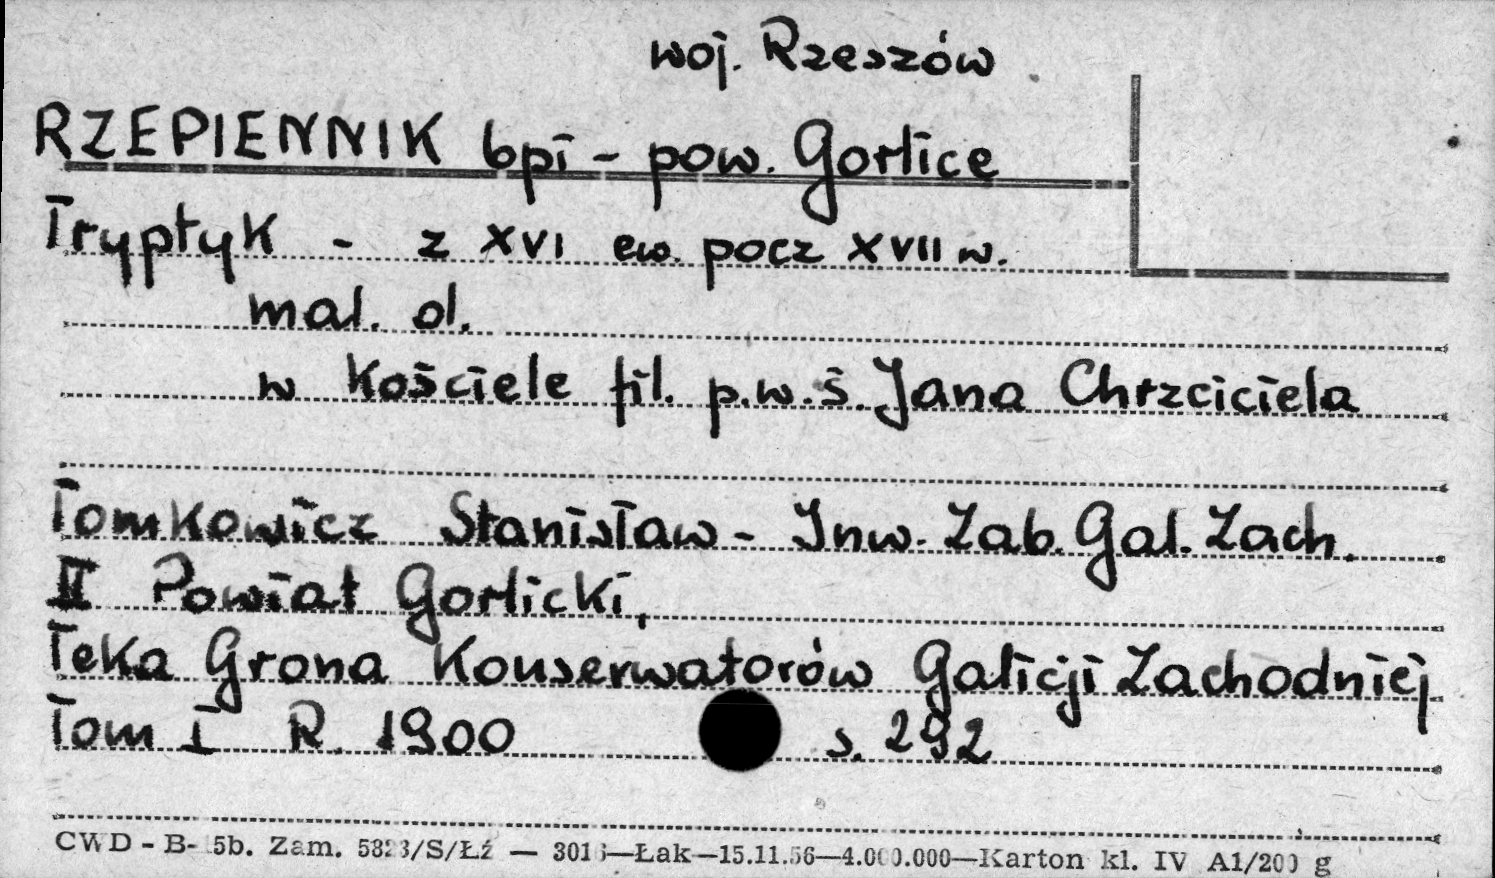 woj. Rzeszów
RZEPIENNIK bpi - pow. Gorlice
Tryptyk - z XVI ew. pocz XVII w.
mal. ol.
w Kościele fil. p.w. ś. Jana Chrzciciela
Tomkowicz Stanisław - Inw. Zab. Gal. Zach.
II Powiat Gorlicki,
Teka Grona Konserwatorów Galicji Zachodniej
Tom I R. 1900 s. 292
CWD - B- 5b. Zam. 5823/S/Łź — 3016—Łak—15.11.56—4.000.000—Karton kl. IV A1/200 g